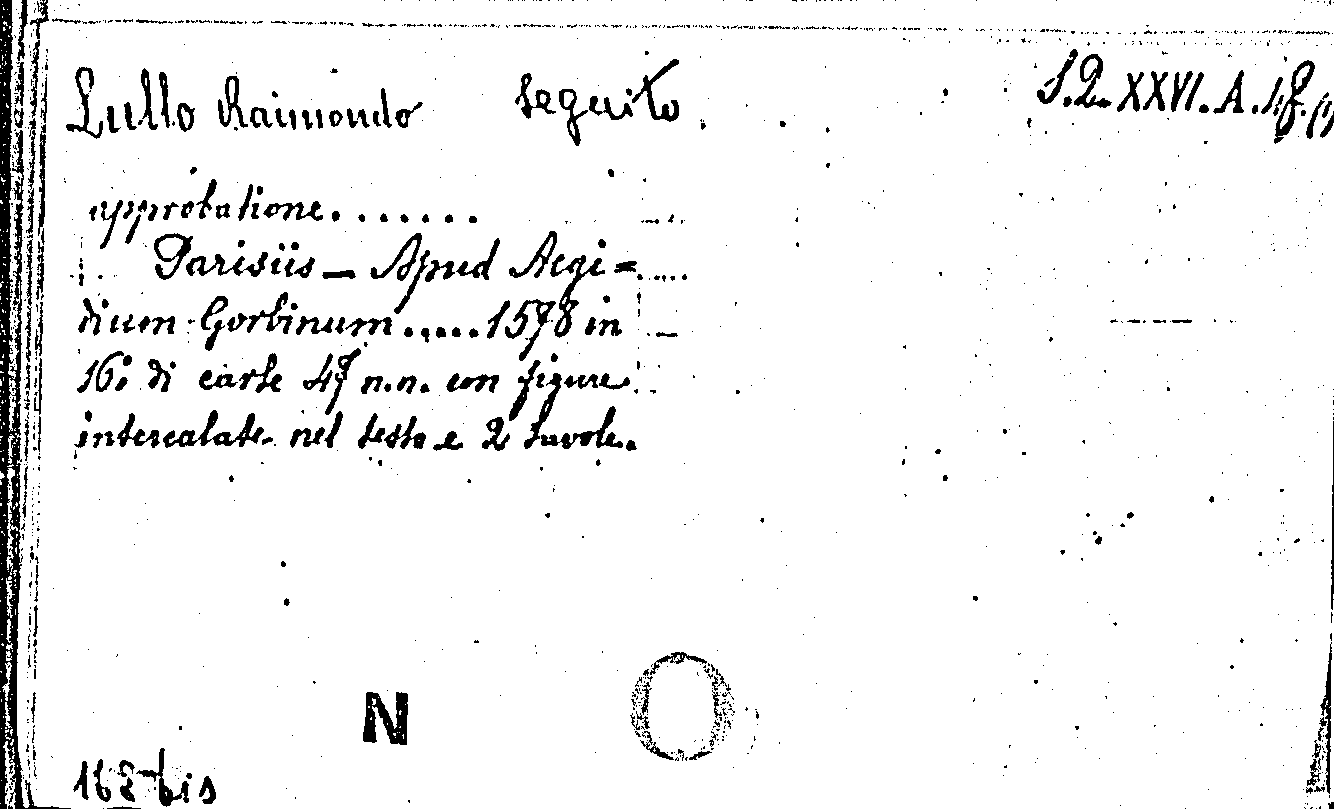 Lullo Raimondo seguito S.Q. XXVI. A. 18. (1)
approbatione.......
Parisiis — Apud Aegi=
dium Gorbinum.....1578 in
16.° di carte 47 n.n. con figure
intercalate nel testo e 2 tavole.
N O
162 bis